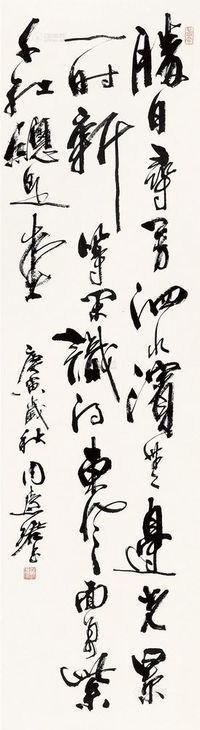 勝日尋芳泗水濱無邊光景
一時新等閑識得東風面万紫
千紅總是春
庚寅歲秋周慧珺书